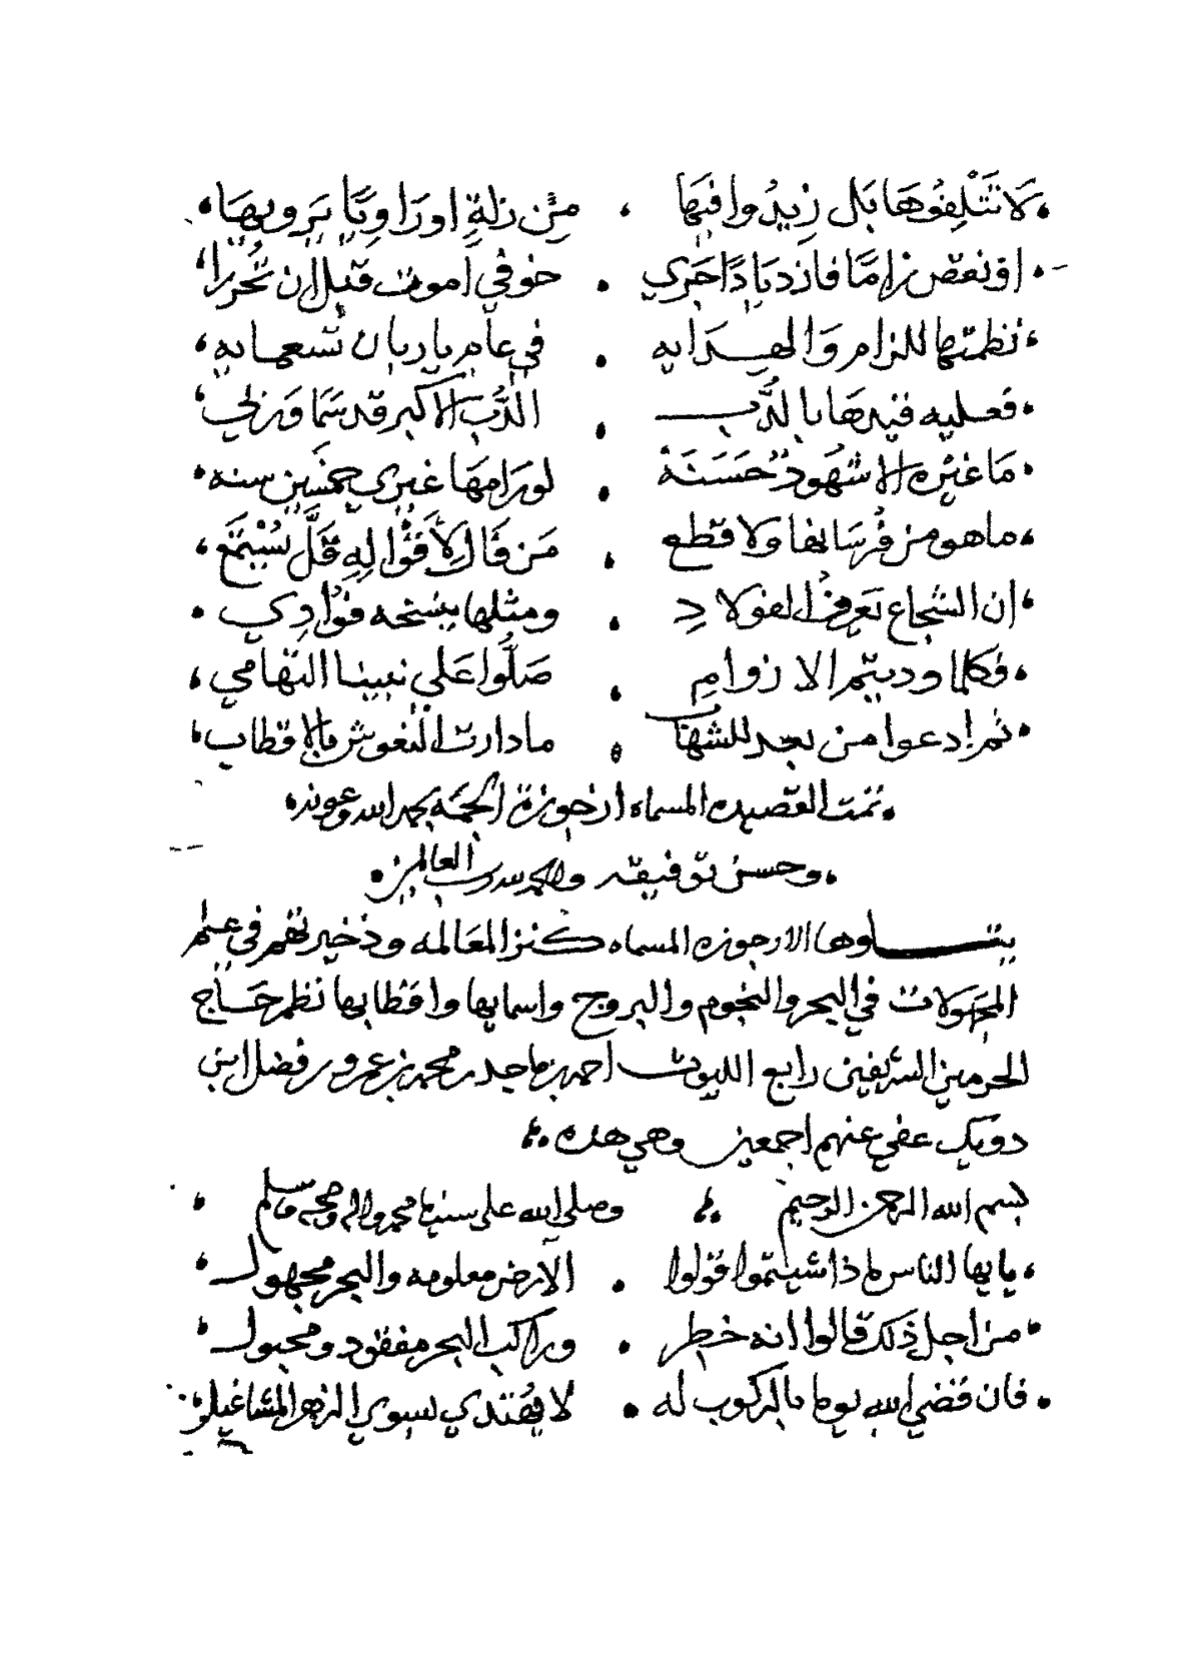 لَا تَتْلِفُوهَا بَل زِيدُوا فيهَا ، مِن زلةٍ او رَاوِيًا يَرويهَا
او نقص زامًّا فازديادًا جَري . خوفي اموت قبل ان تُحررا
نظمتها للزام وَالهدَايه . في عام يا ربان تسعمايه
فعليه فيدهَا بالدُّب . الدُّب الاكبر قد سَمَا
مَا غيْره الا شهُودٌ حَسَنَهْ . لورَامهَا غيري بخمسِين سنه
ماهو من فُرسَانها ولا قطع . مَن قَال لِأقوَالِهِ قَلَّ يُسْتَمَع
ان الشجاع تعرفُ الفولادِ . ومثلها ينسخه فوادِي
فكلما وديتم الازوامِ . صَلُّوا عَلي نبينا التهامي
ثم ادعوا من بعد للشهاب . مادارت النعوش بالاقطاب
تمت القصيده المسماه ارجوزة الجمّه بحمد الله وعونه
وحسن توفيقه والحمد لله رب العالمين
يتلوها الارجوزه المسماه كنز المعَالمه وذخيرتهم في علم
المجهَولات في البحر والنجوم والبروج واسمايها واقطابها نظم حَاج
الحرمين الشريفين رابع الليوث احمد بن ماجد بن محمد بن عمرو بن فضل ابن
دويك عفي عنهم اجمعين وهي هده
بسم الله الرحمن الرحيم وصلى الله على سيدنا محمد واله وصحبه وسلم
يا يها الناس ماذا شيتموا قولوا . الارض معلومه والبحر مجهول
من اجل ذلك قالوا انه خطر . وراكب البحر مفقود ومخبول
فان قضي الله يوما بالركوب له . لا يهتدي بسوي الزهر المشاغيل